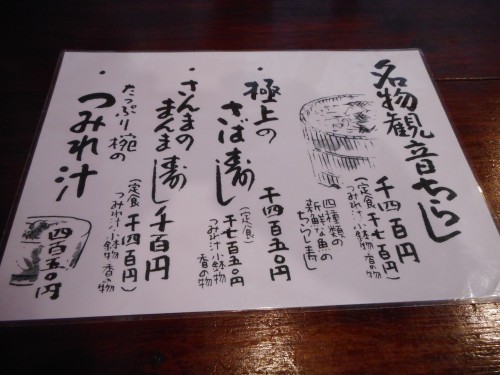 名物観音ちらし
千四百円
(定食 千七百円)
つみれ汁 小鉢物 香の物
四種類の
新鮮な魚の
ちらし寿し
・極上の
さば寿し
千四百五〇円
(定食)
千七百五〇円
つみれ汁 小鉢物
香の物
・さんまの
まんま寿し 千百円
(定食 千四百円)
つみれ汁 小鉢物 香の物
・たっぷり椀の
つみれ汁
四百五〇円